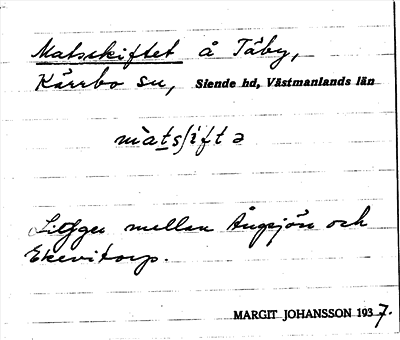 Matsskiftet å Täby,
Kärrbo sn, Siende hd, Västmanlands län
Ligger mellan Ängsjön och
Ekevitorp.
MARGIT JOHANSSON 1937.